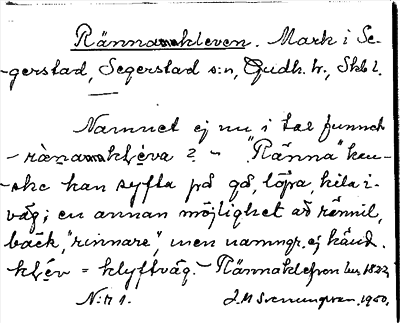 Rännamkleven. Mark i Se-
gerstad, Segerstad s:n, Gudh. hr., Skb l.
Namnet ej nu i tal funnet
- ränamkléva? - "Ränna" kan-
ske kan syfta på gå, löpa, kila i-
väg; en annan möjlighet är rännil,
bäck, "rinnare", men namngr. ej känd.
klév = klyftväg. - Rännaklefvon 1822
N:r 1. J. M. Svenungsson. 1950.